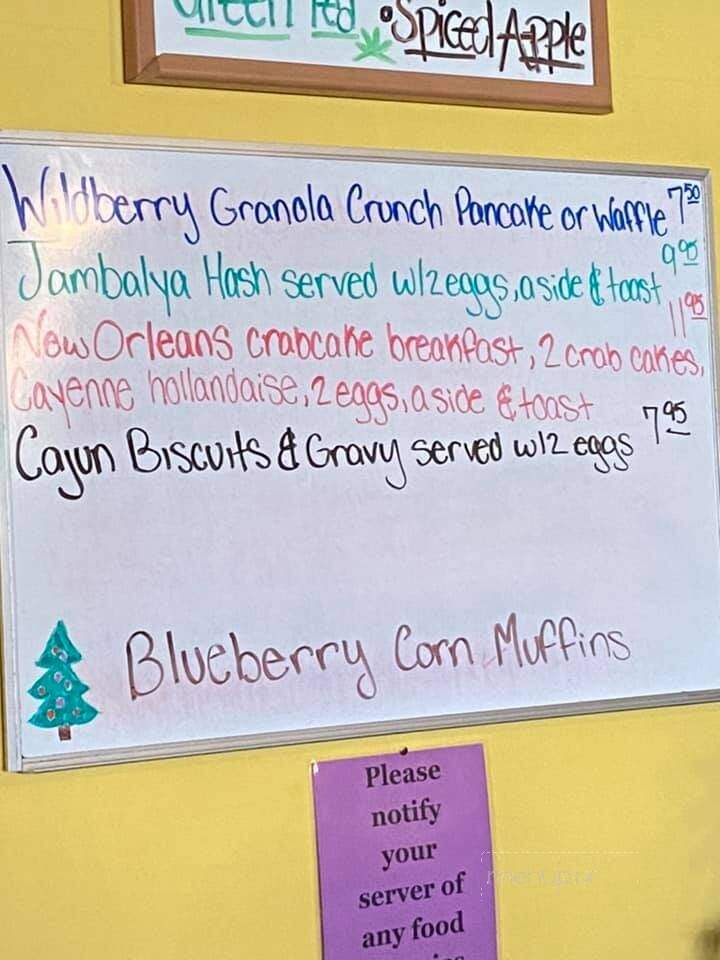 Green Tea •Spiced Apple
Wildberry Granola Crunch Pancake or Waffle 7.50
Jambalya Hash served w/2 eggs, a side & toast 9.95
New Orleans crabcake breakfast, 2 crab cakes, 11.95
Cayenne hollandaise, 2 eggs, a side & toast
Cajun Biscuits & Gravy served w/2 eggs 7.95
Blueberry Corn Muffins
Please
notify
your
server of
any food